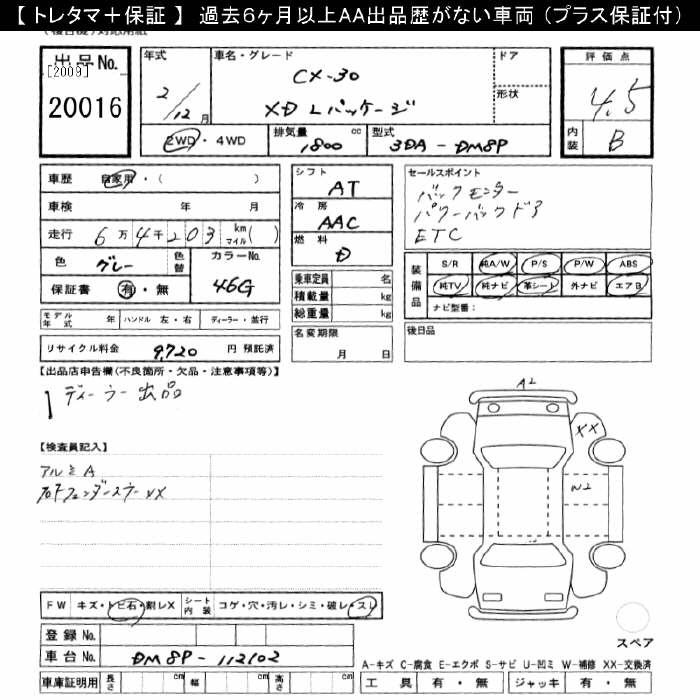 【 トレタマ＋保証 】 過去６ヶ月以上ＡＡ出品歴がない車両（プラス保証付）
出品No. [2009] 20016
年式 2/12月
車名・グレード CX-30 XD Lパッケージ
ドア
形状
評価点 4.5
内装 B
2WD・4WD
排気量 1800 cc
型式 3DA-DM8P
車歴 自家用・( )
車検 年 月
走行 6万4千203 km マイル( )
色 グレー 色替
カラーNo. 46G
保証書 有・無
シフト AT
冷房 AAC
燃料 D
乗車定員 名
積載量 kg
総重量 kg
セールスポイント
バックモニター
パワーバックドア
ETC
装備品
S/R 純A/W P/S P/W ABS
純TV 純ナビ 革シート 外ナビ エアB
ナビ型番：
モデル年式 年 ハンドル 左・右 ディーラー・並行
名変期限 月 日
後日品
リサイクル料金 9,720 円 預託済
【出品店申告欄(不良箇所・欠品・注意事項等)】
ディーラー出品
【検査員記入】
アルミA
右FフェンダーステーXX
A2
XX
W2
スペア
FW キズ・トビ石・割レX シート内装 コゲ・穴・汚レ・シミ・破レ・スレ
登録No.
車台No. DM8P-112102
A-キズ C-腐食 E-エクボ S-サビ U-凹ミ W-補修 XX-交換済
車庫証明用 長さ cm 幅 cm 高さ cm
工具 有・無 ジャッキ 有・無